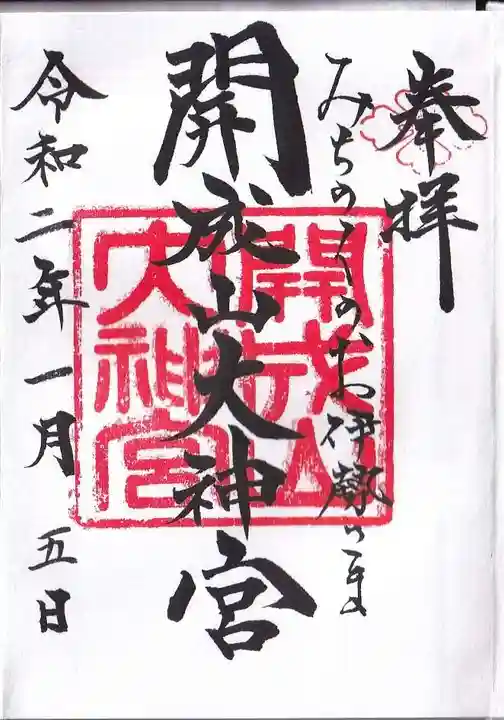 奉拝
みちのくのお伊勢さま
開成山大神宮
開成山
大神宮
令和二年一月五日